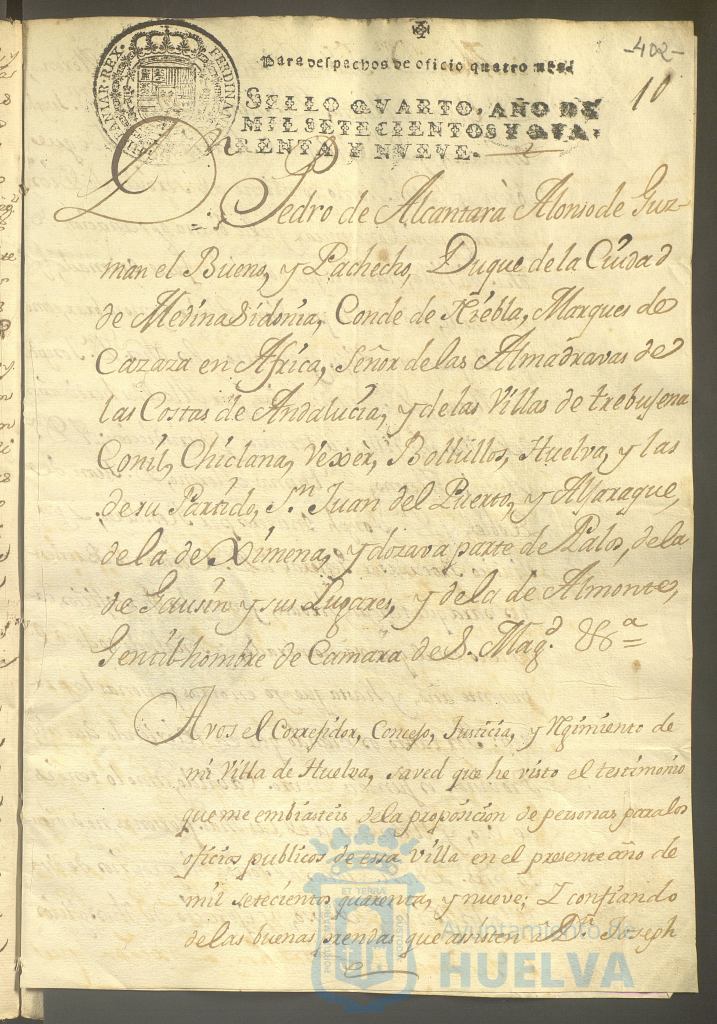 -402-
10
Para despachos de oficio quatro mrs.
SELLO QVARTO, AÑO DE
MIL SETECIENTOS Y QVA-
RENTA Y NVEVE.
D. Pedro de Alcantara Alonso de Guz-
man el Bueno, y Pachecho, Duque de la Ciudad
de Medina Sidonia, Conde de Niebla, Marques de
Cazaza en Africa, Señor de las Almadravas de
las Costas de Andalucia, y de las Villas de trebujena
Conil, Chiclana, Vexer, Bollullos, Huelva, y las
de su Partido, Sn. Juan del Puerto, y Aljaraque,
de la de Ximena, y dozava parte de Palos, de la
de Gausin y sus Lugares, y de la de Almonte,
Gentil-hombre de Camara de S. Magd. &&a =
A vos el Correxidor, Concejo, Justicia, y Rgimiento de
mi Villa de Huelva, saved que he visto el testimonio
que me embiasteis de la proposicion de personas para los
oficios publicos de essa Villa en el presente año de
mil setecientos quarenta, y nueve; I confiando
de las buenas prendas que asisten A Dn. Joseph
Ayuntamiento de
HUELVA